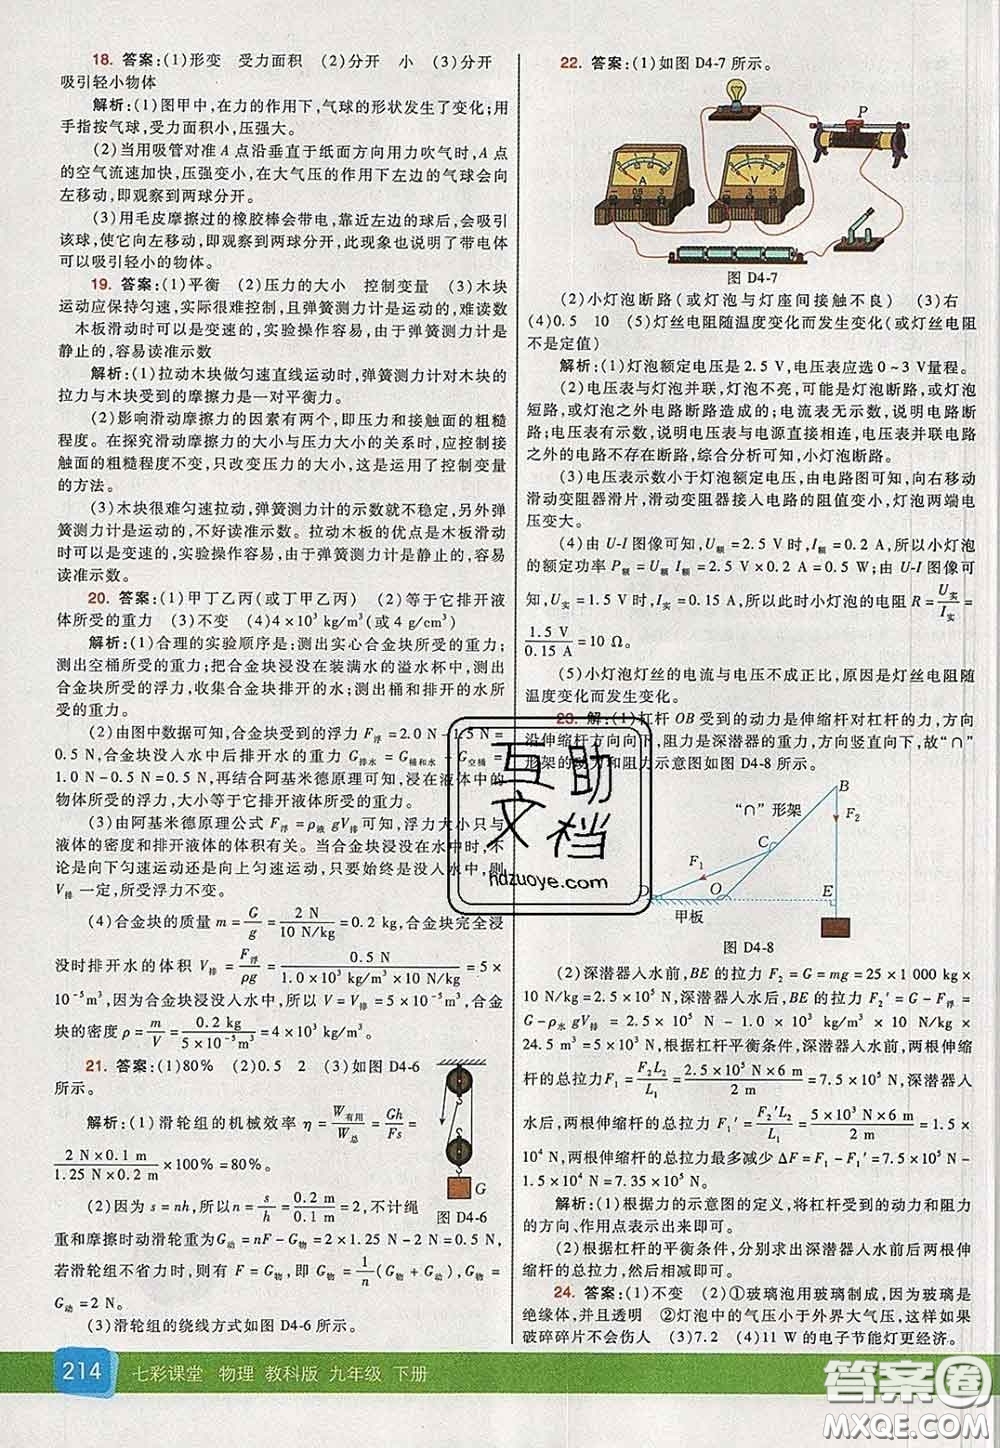 18. 答案:(1)形变　受力面积　(2)分开　小　(3)分开
吸引轻小物体
解析:(1)图甲中,在力的作用下,气球的形状发生了变化;用
手指按气球,受力面积小,压强大。
(2)当用吸管对准 A 点沿垂直于纸面方向用力吹气时,A 点
的空气流速加快,压强变小,在大气压的作用下,右边的气球会向
左移动,即观察到两球分开。
(3)用毛皮摩擦过的橡胶棒会带电,靠近左边的球后,会吸引
该球,使它向左移动,即观察到两球分开,此现象也说明了带电体
可以吸引轻小的物体。
19. 答案:(1)平衡　(2)压力的大小　控制变量　(3)木块
运动应保持匀速,实际很难控制,且弹簧测力计是运动的,难读数
木板滑动时可以是变速的,实验操作容易,由于弹簧测力计是
静止的,容易读准示数
解析:(1)拉动木块做匀速直线运动时,弹簧测力计对木块的
拉力与木块受到的摩擦力是一对平衡力。
(2)影响滑动摩擦力的因素有两个,即压力和接触面的粗糙
程度。在探究滑动摩擦力的大小与压力大小的关系时,应控制接
触面的粗糙程度不变,只改变压力的大小,这是运用了控制变量
的方法。
(3)木块很难匀速拉动,弹簧测力计的示数就不稳定,另外弹
簧测力计是运动的,不好读示数。拉动木板的优点是木板滑动
时可以是变速的,实验操作容易,由于弹簧测力计是静止的,容易
读准示数。
20. 答案:(1)甲丁乙丙(或丁甲乙丙)　(2)等于它排开液
体所受的重力　(3)不变　(4)4×10³ kg/m³(或4 g/cm³)
解析:(1)合理的实验顺序是:测出实心合金块所受的重力;
测出空桶所受的重力;把合金块浸没在装满水的溢水杯中,测出
合金块所受的浮力,收集合金块排开的水;测出桶和排开的水所
受的重力。
(2)由图中数据可知,合金块受到的浮力 F浮=2.0 N-1.5 N=
0.5 N,合金块没入水中后排开水的重力 G排水=G桶和水-G空桶=
1.0 N-0.5 N=0.5 N,再结合阿基米德原理可知,浸在液体中的
物体所受的浮力,大小等于它排开液体所受的重力。
(3)由阿基米德原理公式 F浮=ρ液 gV排可知,浮力大小只与
液体的密度和排开液体的体积有关。当合金块没入水中时,不
论是向下匀速运动还是向上匀速运动,只要不露出水面,则
V排一定,所受浮力不变。
(4)合金块的质量 m=G/g=2 N/10 N/kg=0.2 kg,合金块完全浸
没时排开水的体积 V排=F浮/ρg=0.5 N/1.0×10³ kg/m³×10 N/kg=5×
10⁻⁵m³,因为合金块浸没入水中,所以 V=V排=5×10⁻⁵m³,合金
块的密度 ρ=m/V=0.2 kg/5×10⁻⁵m³=4×10³ kg/m³。
21. 答案:(1)80%　(2)0.5　2　(3)如图 D4-6
所示。
解析:(1)滑轮组的机械效率 η=W有用/W总=Gh/Fs=
2 N×0.1 m/1.25 N×0.2 m×100%=80%。
G
(2)因为 s=nh,所以n=s/h=0.2 m/0.1 m=2,不计绳
图 D4-6
重和摩擦时动滑轮重为G动=nF-G物=2×1.25 N-2 N=0.5 N,
若滑轮组不省力时,则有 F=G物,即 G物=1/n(G物+G动),则
G动=2 N。
(3)滑轮组的绕线方式如图 D4-6 所示。
22. 答案:(1)如图 D4-7 所示。
P
A
V
图 D4-7
(2)小灯泡断路(或灯泡与灯座间接触不良)　(3)右
(4)0.5　10　(5)灯丝电阻随温度变化而发生变化(或灯丝电阻
不是定值)
解析:(1)灯泡额定电压是 2.5 V,电压表应选 0~3 V量程。
(2)电压表与灯泡并联,灯泡不亮,可能是灯泡断路,或灯泡
短路,或灯泡之外电路断路造成的;电流表无示数,说明电路断
路;电压表有示数,说明电压表与电源直接相连,电压表并联电路
之外的电路不存在断路,综合分析可知,小灯泡断路。
(3)电压表示数小于灯泡额定电压,由电路图可知,向右移动
滑动变阻器滑片,滑动变阻器接入电路的阻值变小,灯泡两端电
压变大。
(4)由 U-I 图像可知,U额=2.5 V 时,I=0.2 A,所以小灯泡
的额定功率 P额=U额I=2.5 V×0.2 A=0.5 W;由 U-I 图像可
知,U实=1.5 V时,I实=0.15 A,所以此时小灯泡的电阻 R=U实/I实=
1.5 V/0.15 A=10 Ω。
(5)小灯泡灯丝的电流与电压不成正比,原因是灯丝电阻随
温度变化而发生变化。
23. 解:(1)杠杆 OB 受到的动力是伸缩杆对杠杆的力,方向
沿伸缩杆方向向下,阻力是深潜器的重力,方向竖直向下,故“∩”
形架的动力和阻力示意图如图 D4-8 所示。
“∩”形架
B
F₂
C
F₁
D
O
E
甲板
图 D4-8
(2)深潜器入水前,BE 的拉力 F₂=G=mg=25×1 000 kg×
10 N/kg=2.5×10⁵ N,深潜器入水后,BE 的拉力 F₂′=G-F浮=
G-ρ水 gV排=2.5×10⁵ N-1.0×10³ kg/m³×10 N/kg×
24.5 m³=5×10³ N,根据杠杆平衡条件,深潜器入水前,伸缩
杆的总拉力 F₁=F₂L₂/L₁=2.5×10⁵ N×6 m/2 m=7.5×10⁵ N,深潜器入
水后,伸缩杆的总拉力 F₁′=F₂′L₂/L₁=5×10³ N×6 m/2 m=1.5×
10⁴ N,两伸缩杆的总拉力最多减少 ΔF=F₁-F₁′=7.5×10⁵ N-1.5×
10⁴ N=7.35×10⁵ N。
解析:(1)根据力的示意图的定义,将杠杆受到的动力和阻力
的方向、作用点表示出来即可。
(2)根据杠杆的平衡条件,分别求出深潜器入水前后两根伸
缩杆的总拉力,然后相减即可。
24. 答案:(1)不变　(2)①玻璃泡用玻璃制成,因为玻璃是
绝缘体,并且透明　②灯泡中的气压小于外界大气压,这样如果
破碎碎片不会伤人　(3)7.2　(4)11 W 的电子节能灯更经济。
互助文档
hdzuoye.com
214 七彩课堂 物理 教科版 九年级 下册
答案圈
MXQE.COM